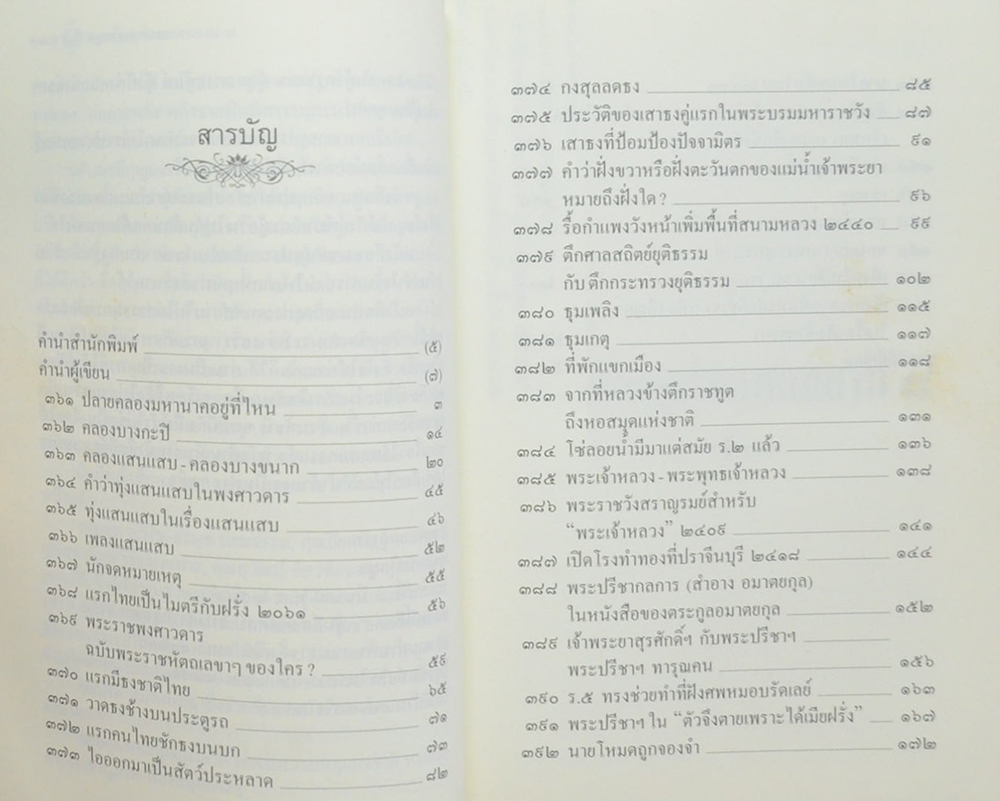 สารบัญ
คำนำสำนักพิมพ์ (๕)
คำนำผู้เขียน (๗)
๓๖๑ ปลายคลองมหานาคอยู่ที่ไหน ๓
๓๖๒ คลองบางกะปิ ๑๔
๓๖๓ คลองแสนแสบ - คลองบางขนาก ๒๐
๓๖๔ คำว่าทุ่งแสนแสบในพงศาวดาร ๔๕
๓๖๕ ทุ่งแสนแสบในเรื่องแสนแสบ ๔๖
๓๖๖ เพลงแสนแสบ ๕๒
๓๖๗ นักจดหมายเหตุ ๕๕
๓๖๘ แรกไทยเป็นไมตรีกับฝรั่ง ๒๐๖๑ ๕๖
๓๖๙ พระราชพงศาวดาร
ฉบับพระราชหัตถเลขาๆ ของใคร ? ๕๙
๓๗๐ แรกมีธงชาติไทย ๖๕
๓๗๑ วาดธงช้างบนประตูรถ ๗๑
๓๗๒ แรกคนไทยชักธงบนบก ๗๓
๓๗๓ ไอออกมาเป็นสัตว์ประหลาด ๘๒
๓๗๔ กงสุลลดธง ๘๕
๓๗๕ ประวัติของเสาธงคู่แรกในพระบรมมหาราชวัง ๘๗
๓๗๖ เสาธงที่ป้อมป้องปัจจามิตร ๙๑
๓๗๗ คำว่าฝั่งขวาหรือฝั่งตะวันตกของแม่น้ำเจ้าพระยา
หมายถึงฝั่งใด ? ๙๖
๓๗๘ รื้อกำแพงวังหน้าเพิ่มพื้นที่สนามหลวง ๒๔๔๐ ๙๙
๓๗๙ ตึกศาลสถิตย์ยุติธรรม
กับ ตึกกระทรวงยุติธรรม ๑๐๒
๓๘๐ ธุมเพลิง ๑๑๕
๓๘๑ ธุมเกตุ ๑๑๗
๓๘๒ ที่พักแขกเมือง ๑๑๘
๓๘๓ จากที่หลวงข้างตึกราชทูต
ถึงหอสมุดแห่งชาติ ๑๓๑
๓๘๔ โซ่ลอยน้ำมีมาแต่สมัย ร.๒ แล้ว ๑๓๖
๓๘๕ พระเจ้าหลวง - พระพุทธเจ้าหลวง ๑๓๘
๓๘๖ พระราชวังสราญรมย์สำหรับ
“พระเจ้าหลวง” ๒๔๐๙ ๑๔๑
๓๘๗ เปิดโรงทำทองที่ปราจีนบุรี ๒๔๑๘ ๑๔๔
๓๘๘ พระปรีชากลการ (สำอาง อมาตยกุล)
ในหนังสือของตระกูลอมาตยกุล ๑๕๒
๓๘๙ เจ้าพระยาสุรศักดิ์ฯ กับพระปรีชาฯ
พระปรีชาฯ ทารุณคน ๑๕๖
๓๙๐ ร.๕ ทรงช่วยทำที่ฝังศพหมอบรัดเลย์ ๑๖๓
๓๙๑ พระปรีชาฯ ใน “ตัวจึงตายเพราะได้เมียฝรั่ง” ๑๖๗
๓๙๒ นายโหมดถูกจองจำ ๑๗๒